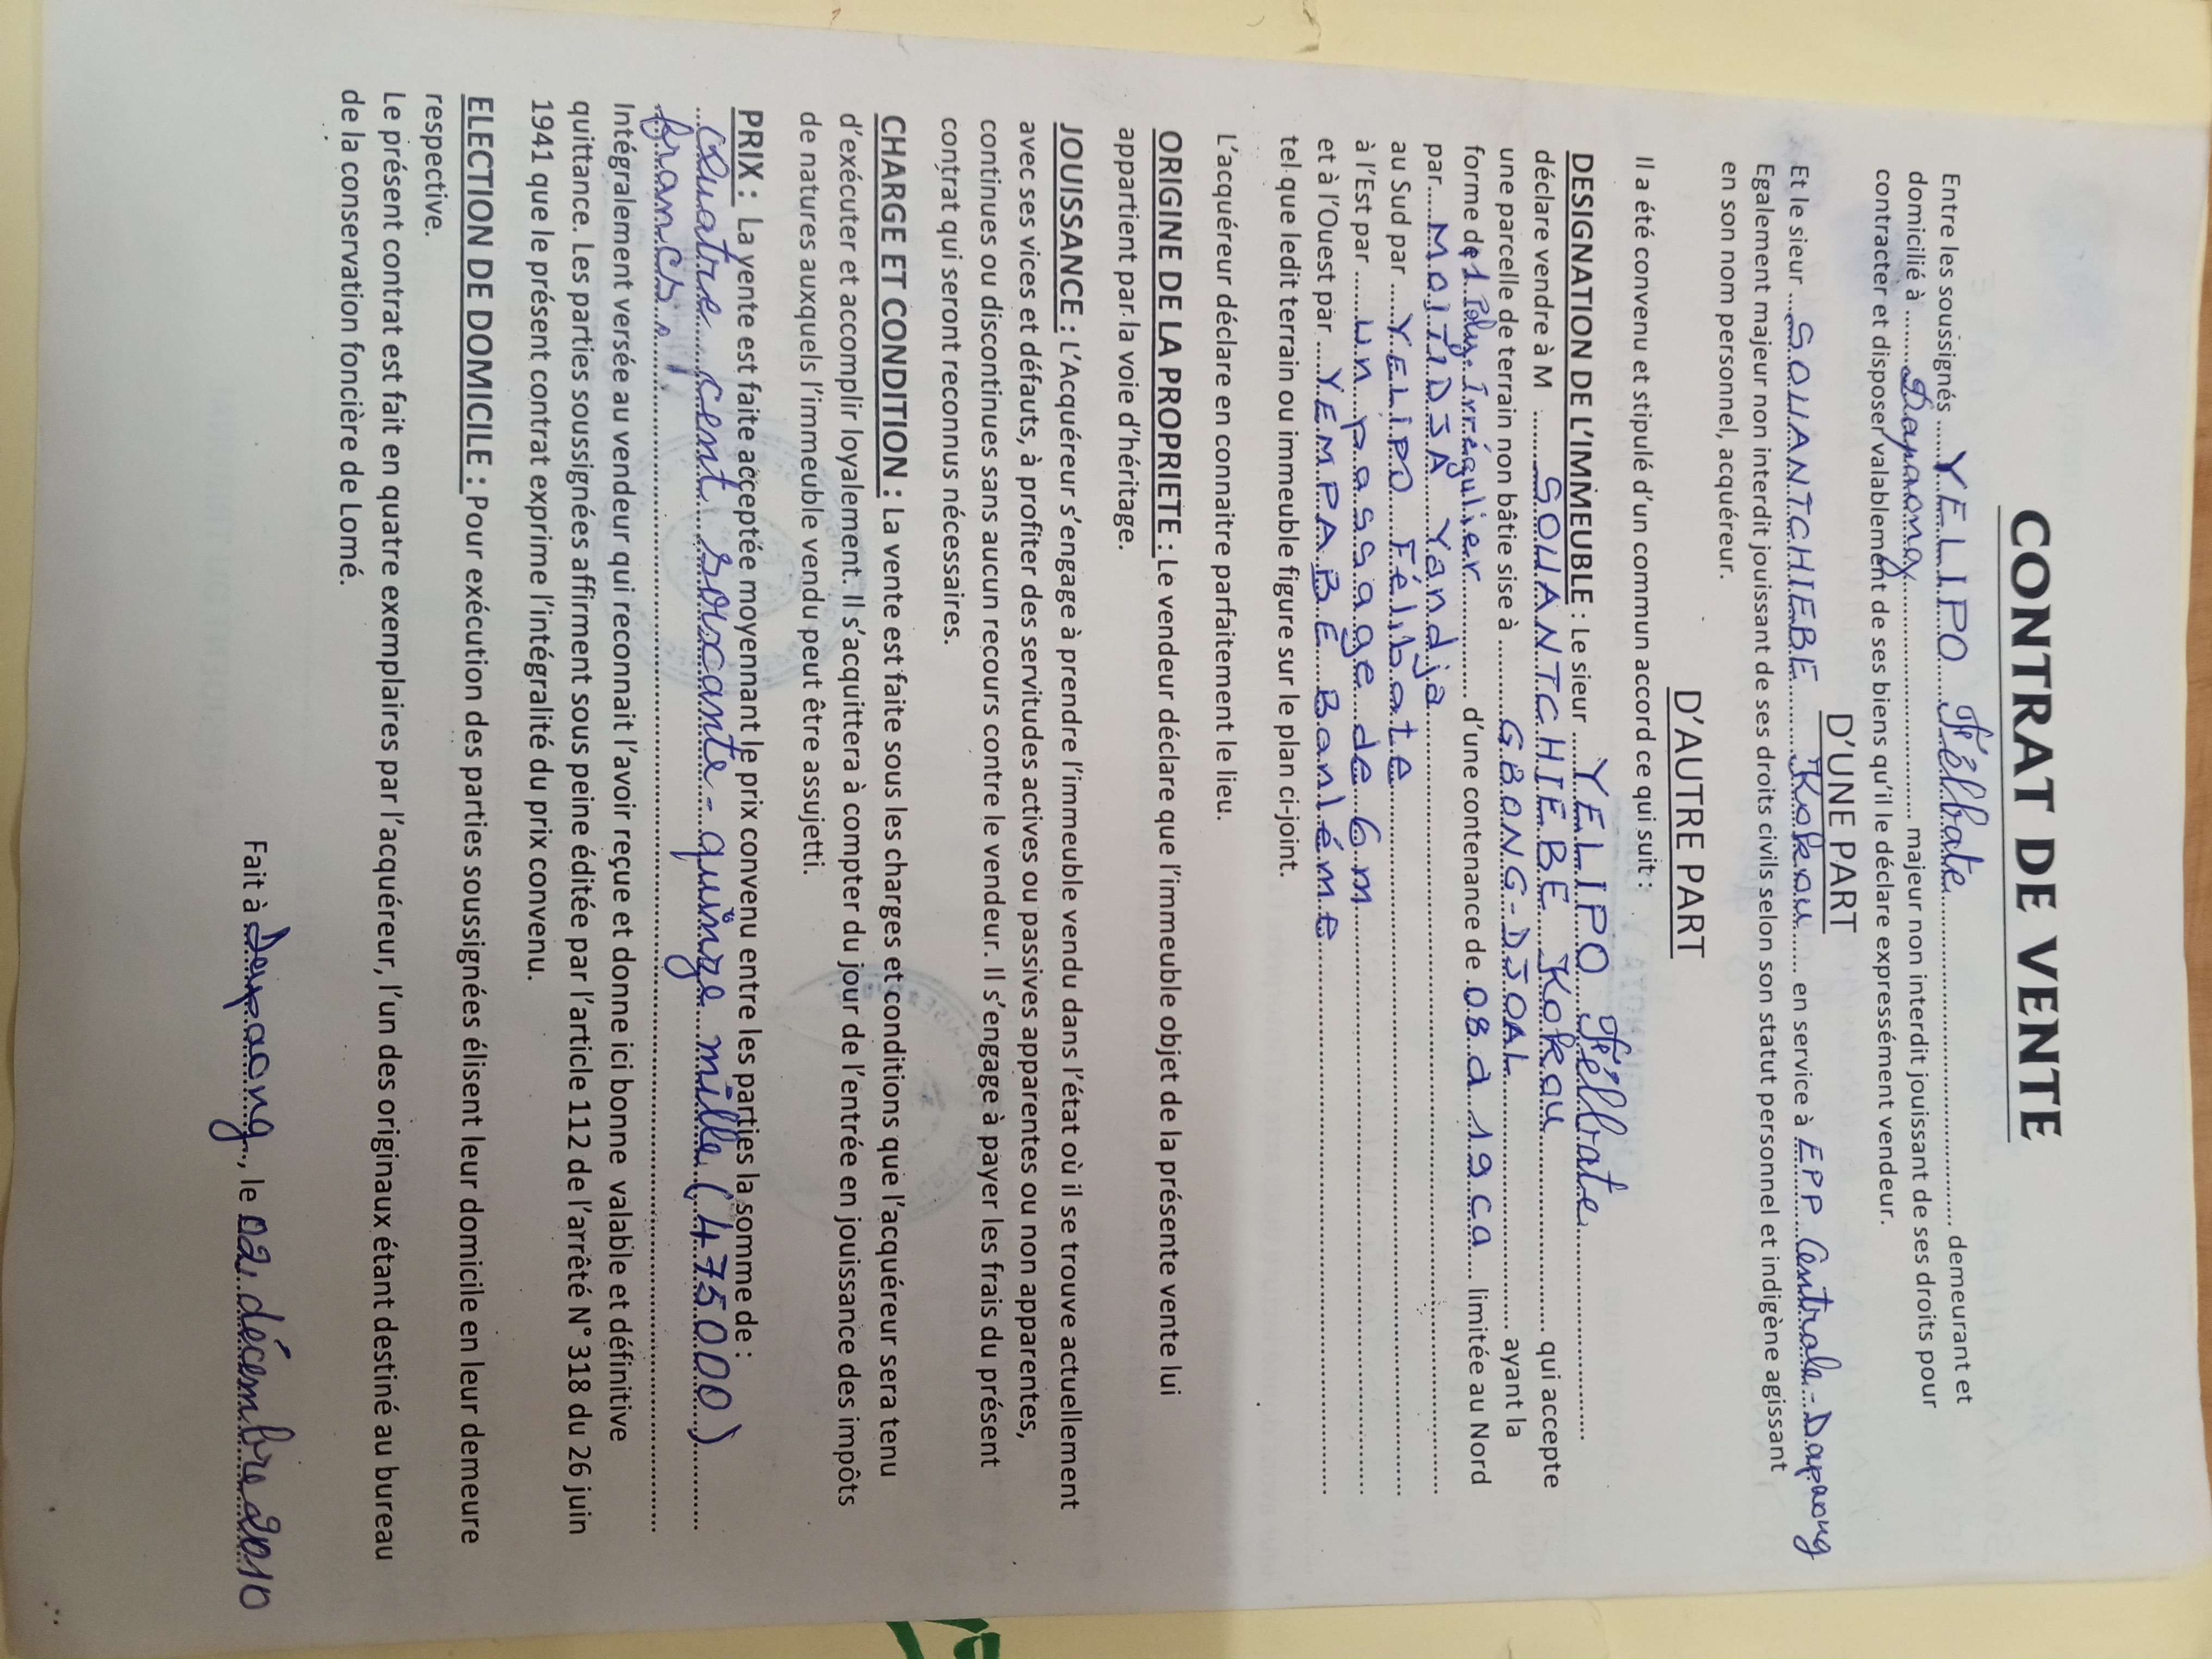 CONTRAT DE VENTE
Entre les soussignés ...... YELIPO Félbate ...... demeurant et
domicilié à ...... Dapaong ...... majeur non interdit jouissant de ses droits pour
contracter et disposer valablement de ses biens qu'il le déclare expressément vendeur.
D'UNE PART
Et le sieur ...... SOUANTCHIEBE ...... Kokou ...... en service à EPP Centrale-Dapaong
Egalement majeur non interdit jouissant de ses droits civils selon son statut personnel et indigène agissant
en son nom personnel, acquéreur.
D'AUTRE PART
Il a été convenu et stipulé d'un commun accord ce qui suit :
DESIGNATION DE L'IMMEUBLE : Le sieur ...... YELIPO Félbate ......
déclare vendre à M ...... SOUANTCHIEBE Kokou ...... qui accepte
une parcelle de terrain non bâtie sise à ...... GBONG-DJOAL ...... ayant la
forme de Poly. Irrégulier ...... d'une contenance de 08 a 19ca ...... limitée au Nord
par ...... MOJTIDJA Yandja ......
au Sud par ...... YELIPO Félibate ......
à l'Est par ...... un passage de 6 m ......
et à l'Ouest par ...... YEMPABE Banléme ......
tel que ledit terrain ou immeuble figure sur le plan ci-joint.
L'acquéreur déclare en connaitre parfaitement le lieu.
ORIGINE DE LA PROPRIETE : Le vendeur déclare que l'immeuble objet de la présente vente lui
appartient par la voie d'héritage.
JOUISSANCE : L'Acquéreur s'engage à prendre l'immeuble vendu dans l'état où il se trouve actuellement
avec ses vices et défauts, à profiter des servitudes actives ou passives apparentes ou non apparentes,
continues ou discontinues sans aucun recours contre le vendeur. Il s'engage à payer les frais du présent
contrat qui seront reconnus nécessaires.
CHARGE ET CONDITION : La vente est faite sous les charges et conditions que l'acquéreur sera tenu
d'exécuter et accomplir loyalement. Il s'acquittera à compter du jour de l'entrée en jouissance des impôts
de natures auxquels l'immeuble vendu peut être assujetti.
PRIX : La vente est faite acceptée moyennant le prix convenu entre les parties la somme de :
Quatre cent soixante-quinze mille (475000)
francs.
Intégralement versée au vendeur qui reconnait l'avoir reçue et donne ici bonne valable et définitive
quittance. Les parties soussignées affirment sous peine éditée par l'article 112 de l'arrêté N° 318 du 26 juin
1941 que le présent contrat exprime l'intégralité du prix convenu.
ELECTION DE DOMICILE : Pour exécution des parties soussignées élisent leur domicile en leur demeure
respective.
Le présent contrat est fait en quatre exemplaires par l'acquéreur, l'un des originaux étant destiné au bureau
de la conservation foncière de Lomé.
Fait à Dapaong, le 02 décembre 2010